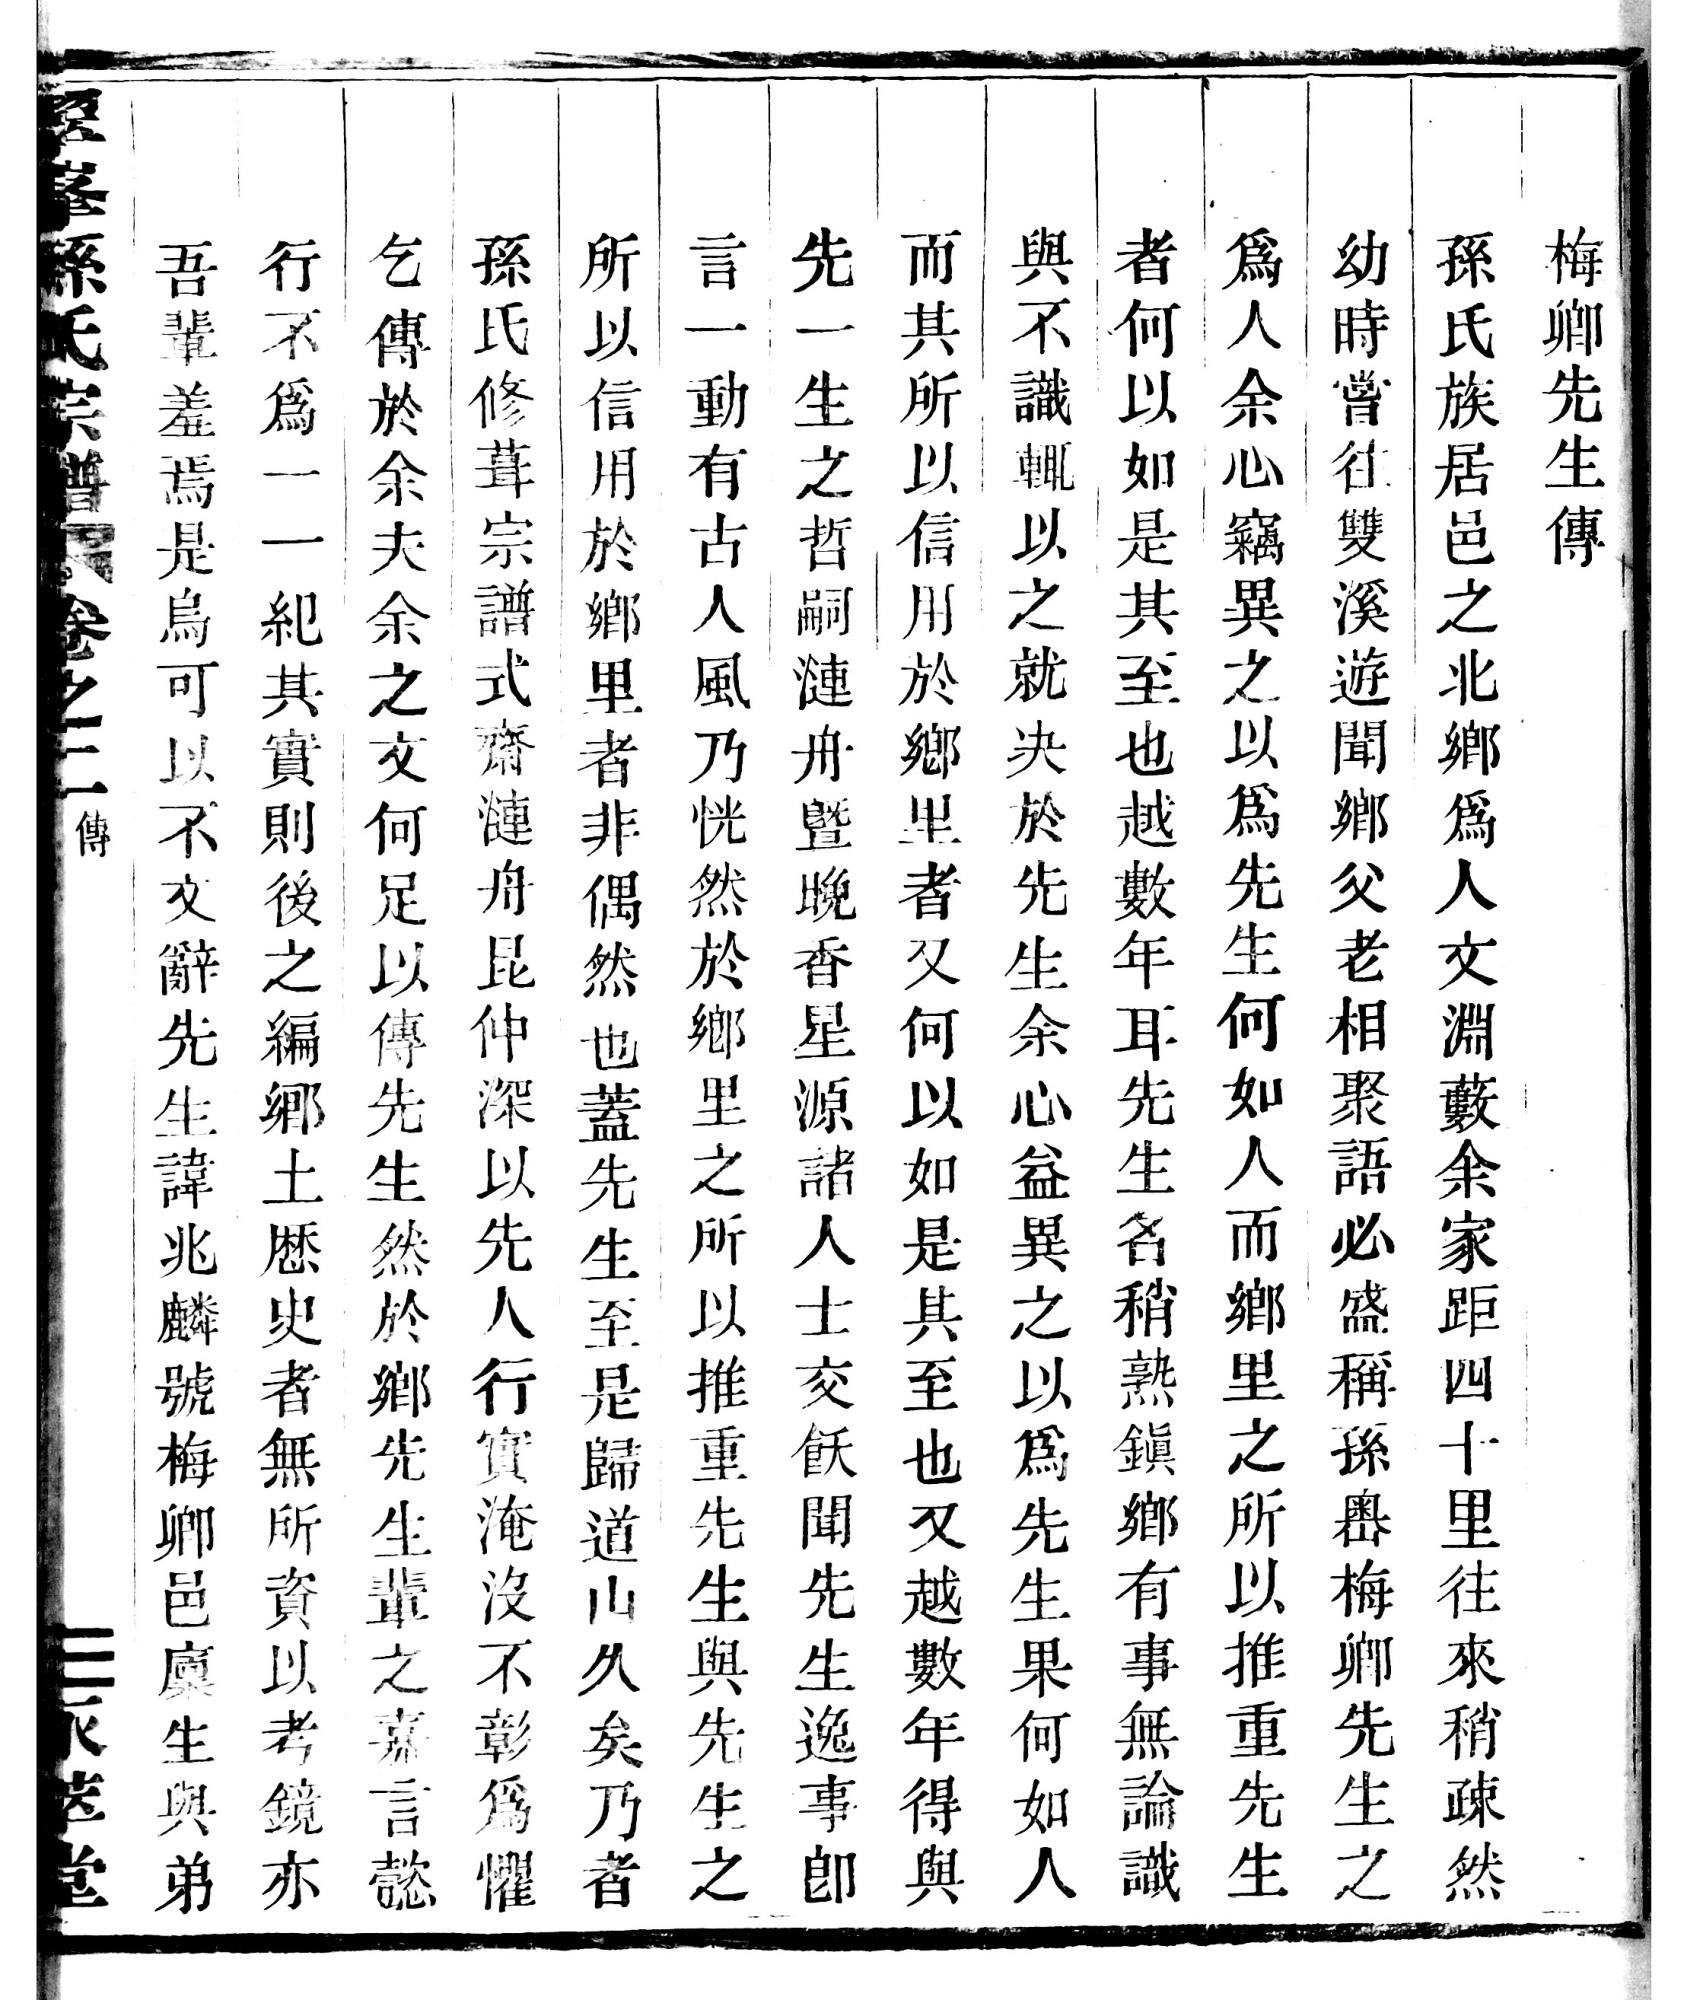 梅卿先生傳
孫氏族居邑之北鄉爲人文淵藪余家距四十里往來稍疎然
幼時嘗往雙溪遊聞鄉父老相聚語必盛稱孫嶴梅卿先生之
爲人余心竊異之以爲先生何如人而鄉里之所以推重先生
者何以如是其至也越數年耳先生名稍熟鎭鄉有事無論識
與不識輒以之就决於先生余心益異之以爲先生果何如人
而其所以信用於鄉里者又何以如是其至也又越數年得與
先一生之哲嗣漣舟曁晚香星源諸人士交飫聞先生逸事卽
言一動有古人風乃恍然於鄉里之所以推重先生與先生之
所以信用於鄉里者非偶然也蓋先生至是歸道山久矣乃者
孫氏修葺宗譜式齋漣舟昆仲深以先人行實淹沒不彰爲懼
乞傳於余夫余之文何足以傳先生然於鄉先生輩之嘉言懿
行不爲一一紀其實則後之編鄉土歷史者無所資以考鏡亦
吾輩羞焉是烏可以不文辭先生諱兆麟號梅卿邑廩生與弟
孫氏宗譜 卷之二 傳 三 萃堂